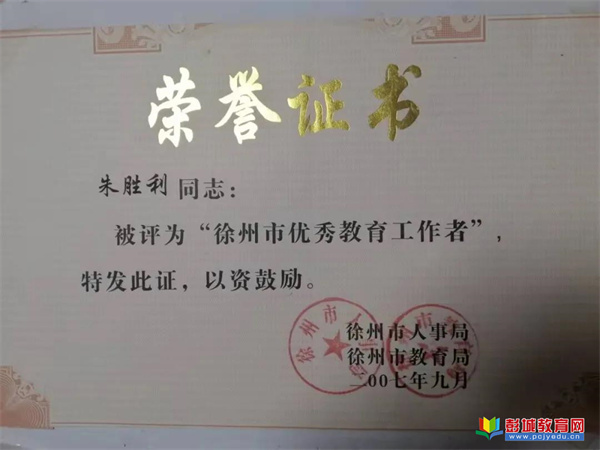 荣誉证书
朱胜利同志：
被评为“徐州市优秀教育工作者”，
特发此证，以资鼓励。
徐州市人事局
徐州市教育局
二00七年九月
彭城教育网
www.pcjyedu.cn